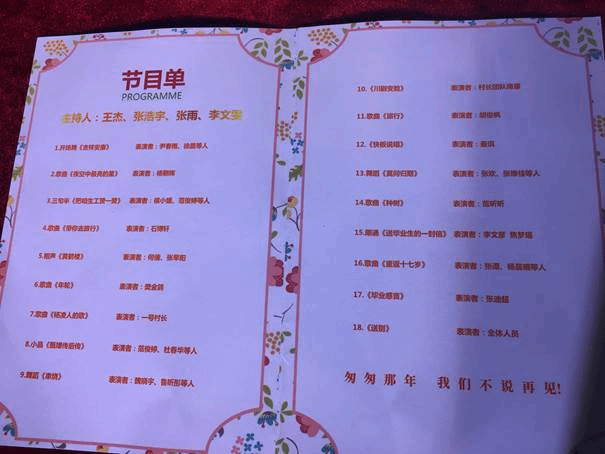 节目单
PROGRAMME
主持人：王杰、张浩宇、张雨、李文雯
1.开场舞《吉祥安康》 表演者：尹春雨、徐晨等人
2.歌曲《夜空中最亮的星》 表演者：杨朝辉
3.三句半《把咱生工赞一赞》 表演者：侯小媛、范俊婷等人
4.歌曲《带你去旅行》 表演者：石博轩
5.相声《黄鹤楼》 表演者：何强、张早阳
6.歌曲《年轮》 表演者：樊金鸽
7.歌曲《杨凌人的歌》 表演者：一号村长
8.小品《面雄传后传》 表演者：范俊婷、杜春华等人
9.舞蹈《串烧》 表演者：魏晓宇、鲁昕彤等人
10.《川剧变脸》 表演者：村长团队商廖
11.歌曲《旅行》 表演者：胡俊枫
12.《快板说唱》 表演者：秦琪
13.舞蹈《莫问归期》 表演者：张欢、张缘桂等人
14.歌曲《种树》 表演者：范昕昕
15.朗诵《送毕业生的一封信》 表演者：李文彦 焦梦娟
16.歌曲《重返十七岁》 表演者：张港、杨晨曦等人
17.《毕业感言》 表演者：张迪超
18.《送别》 表演者：全体人员
匆匆那年 我们不说再见!